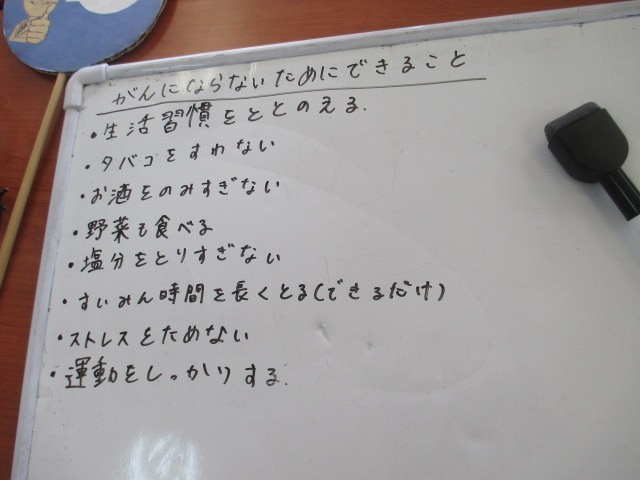 がんにならないためにできること
・生活習慣をととのえる.
・タバコをすわない
・お酒をのみすぎない
・野菜も食べる
・塩分をとりすぎない
・すいみん時間を長くとる(できるだけ)
・ストレスをためない
・運動をしっかりする.